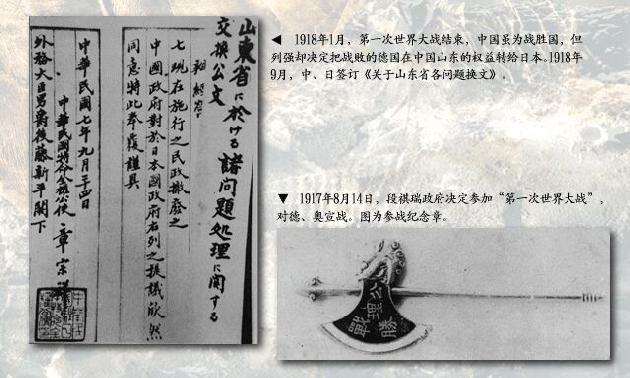 山東省に於ける諸問題処理に関する
交換公文
七 現在施行之民政撤廢之
中國政府對於日本國政府右列之提議欣然
同意特此奉覆謹具
中華民國七年九月二十四日
中華民國特命全權公使 章宗祥
外務大臣男爵後藤新平閣下
◀ 1918年1月,第一次世界大战结束,中国虽为战胜国,但
列强却决定把战败的德国在中国山东的权益转给日本。1918年
9月,中、日签订《关于山东省各问题换文》。
▼ 1917年8月14日,段祺瑞政府决定参加“第一次世界大战”,
对德、奥宣战。图为参战纪念章。
公理
戰勝